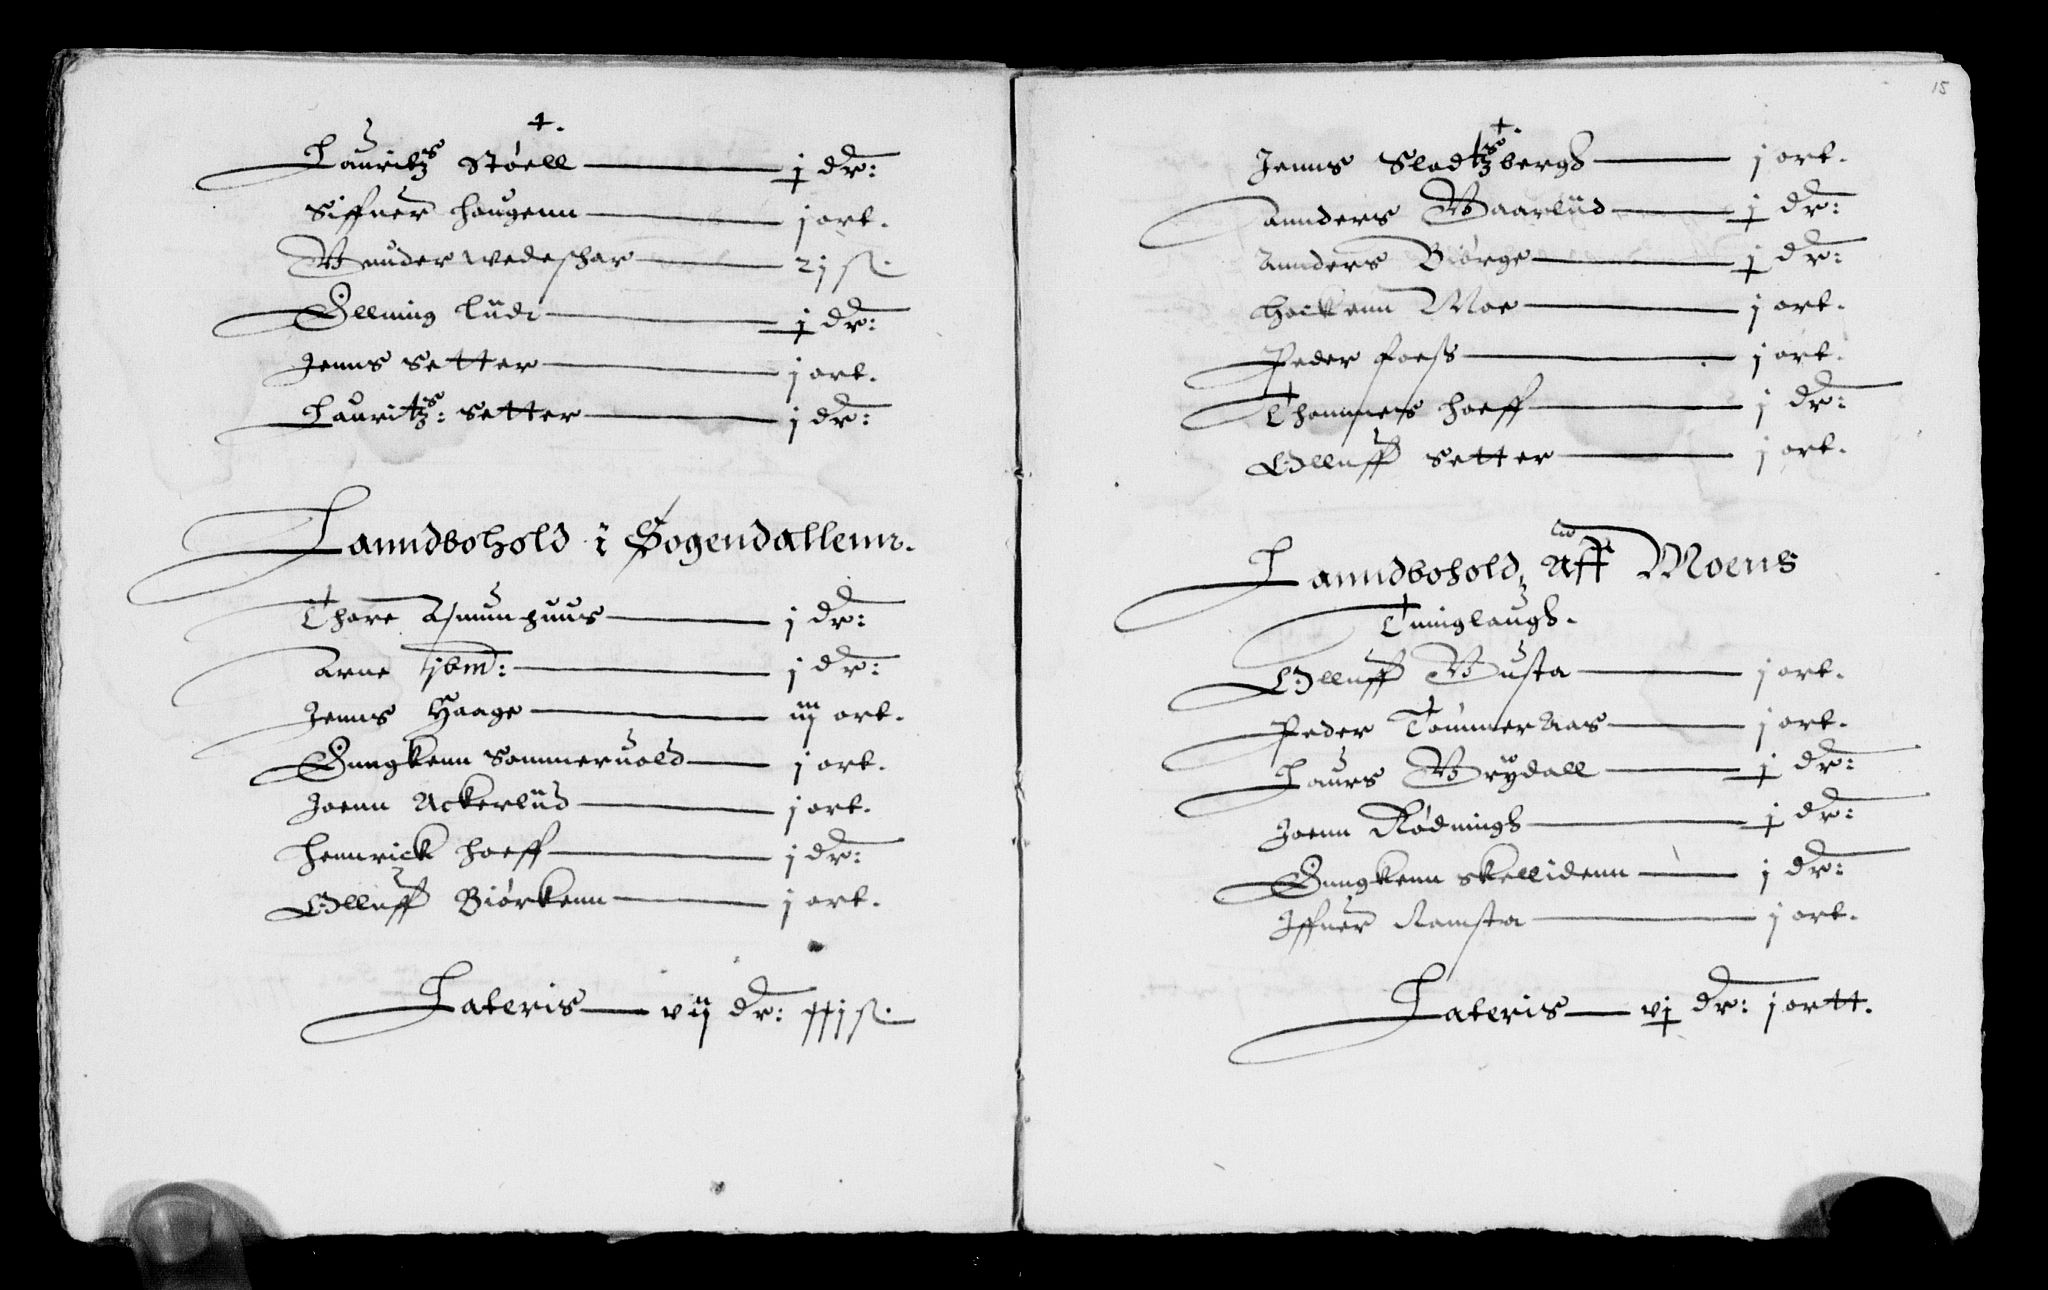 +.
Lauritzs Støell — j dr:
Siffuer Haugenn — j ort.
Gunder Wedeshar — 2j s.
Elling Lude — j dr:
Jenns Setter — j ort.
Lauritzs: Setter — j dr:
Lanndbohold i Sogendallenn.
Thore Asmunhuus — j dr:
Arne ibm: — j dr:
Jenns Haage — iij ort.
Gungkenn Sommeruold — j ort.
Joenn Ackerlüd — j ort.
Hennrick Hoeff — j dr:
Olluff Biørkenn — j ort.
Lateris — vij dr: xxj s.
15
+.
Jenns Slodtzsbergh — j ort.
Annders Baarlüd — j dr:
Annders Biørge — j dr:
Hockenn Moe — j ort.
Peder Foess — j ort.
Thommes Hoeff — j dr:
Olluff Setter — j ort.
Lanndbohold, Aff Moens
Tinglaugh.
Olluff Busta — j ort.
Peder Tømmeraas — j ort.
Laurs Brydall — j dr:
Joenn Rødningh — j dr:
Gungkenn Skellidenn — j dr:
Iffuer Ramsta — j ort.
Lateris — vj dr: j ortt.